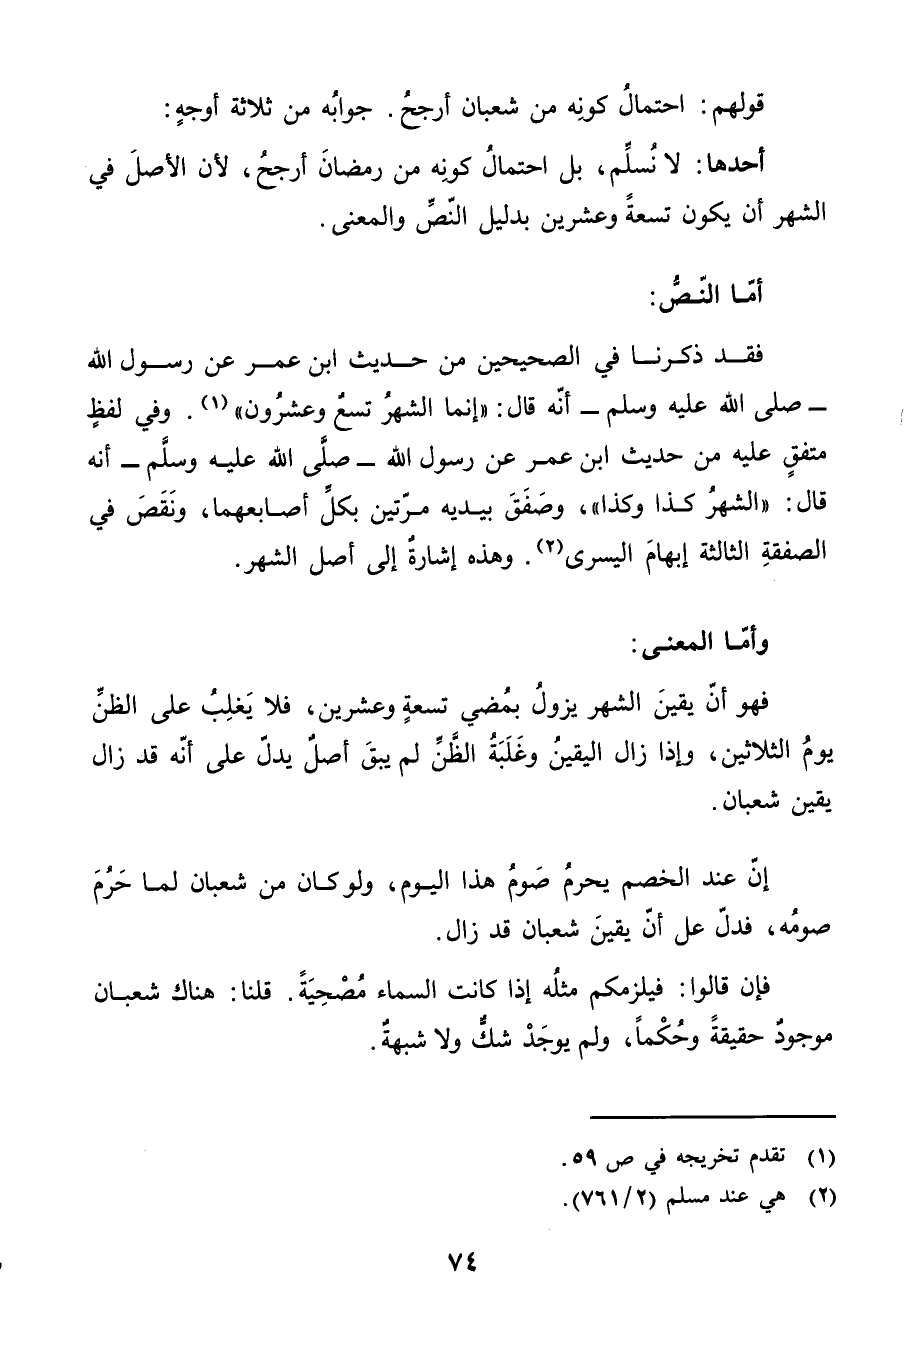 قولهم: احتمالُ كونِه من شعبان أرجحُ. جوابُه من ثلاثة أوجهٍ:
أحدها: لا نُسلِّم، بل احتمالُ كونِه من رمضانَ أرجحُ، لأن الأصلَ في
الشهر أن يكون تسعةً وعشرين بدليل النّصِّ والمعنى.
أمّا النّصُّ:
فقد ذكرنا في الصحيحين من حديث ابن عمر عن رسول الله
ــ صلى الله عليه وسلم ــ أنّه قال: «إنما الشهرُ تسعٌ وعشرُون»(١). وفي لفظٍ
متفقٍ عليه من حديث ابن عمر عن رسول الله ــ صلَّى الله عليه وسلَّم ــ أنه
قال: «الشهرُ كذا وكذا»، وصَفَقَ بيديه مرّتين بكلِّ أصابعهما، ونَقَصَ في
الصفقةِ الثالثة إبهامَ اليسرى(٢). وهذه إشارةٌ إلى أصل الشهر.
وأمّا المعنى:
فهو أنّ يقينَ الشهر يزولُ بمُضي تسعةٍ وعشرين، فلا يَغلِبُ على الظنِّ
يومُ الثلاثين، وإذا زال اليقينُ وغَلَبَةُ الظَّنِّ لم يبقَ أصلٌ يدلّ على أنّه قد زال
يقين شعبان.
إنّ عند الخصم يحرمُ صَومُ هذا اليوم، ولو كان من شعبان لما حَرُمَ
صومُه، فدلّ عل أنّ يقينَ شعبان قد زال.
فإن قالوا: فيلزمكم مثلُه إذا كانت السماء مُصْحِيَةً. قلنا: هناك شعبان
موجودٌ حقيقةً وحُكْماً، ولم يوجَدْ شكٌّ ولا شبهةٌ.
(١) تقدم تخريجه في ص ٥٩.
(٢) هي عند مسلم (٧٦١/٢).
٧٤